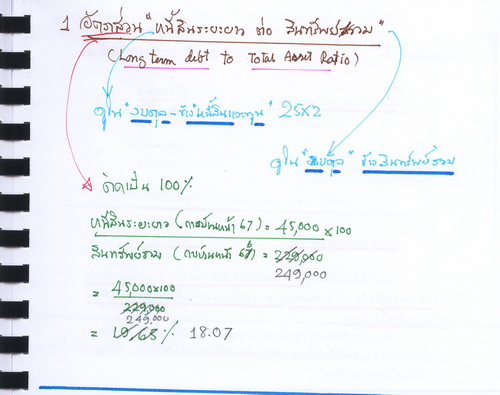 1 อัตราส่วน "หนี้สินระยะยาว ต่อ สินทรัพย์รวม"
(Long term debt to Total Asset Ratio)
ดูใน "งบดุล - ข้างหนี้สินและทุน" 25X2
ดูใน "งบดุล" ข้างสินทรัพย์รวม
คิดเป็น 100%
หนี้สินระยะยาว ( หน้า 67) = 45,000 x 100
สินทรัพย์รวม ( หน้า ) = 229,000
249,000
= 45,000x100
229,000
249,000
= 19.65% 18.07